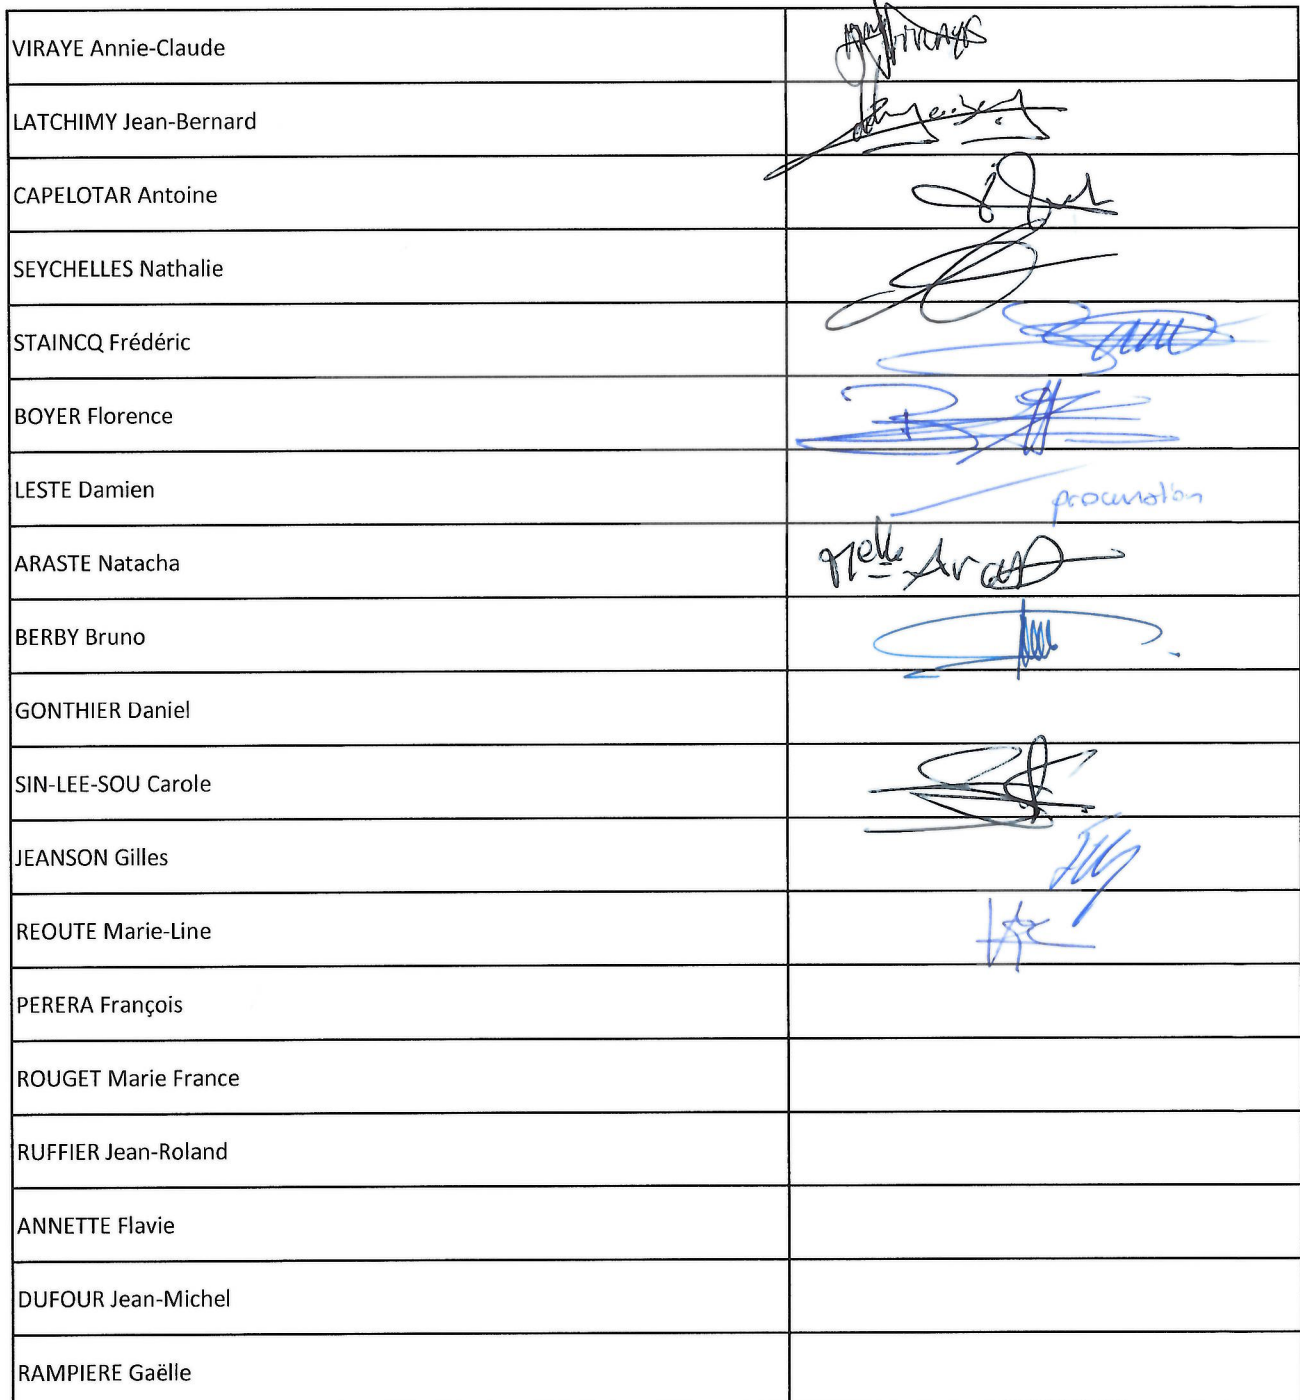 VIRAYE Annie-Claude
LATCHIMY Jean-Bernard
CAPELOTAR Antoine
SEYCHELLES Nathalie
STAINCQ Frédéric
BOYER Florence
LESTE Damien
procuration
ARASTE Natacha
Melle
BERBY Bruno
GONTHIER Daniel
SIN-LEE-SOU Carole
JEANSON Gilles
REOUTE Marie-Line
PERERA François
ROUGET Marie France
RUFFIER Jean-Roland
ANNETTE Flavie
DUFOUR Jean-Michel
RAMPIERE Gaëlle